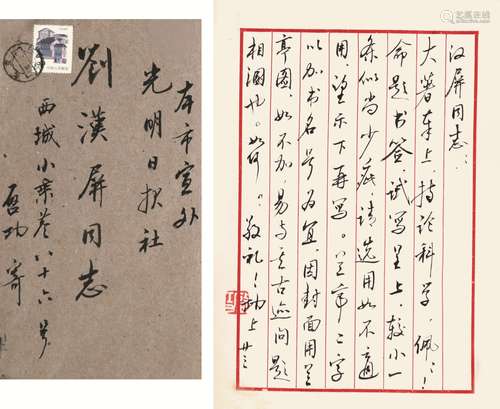 本市宣外
光明日报社
劉漢屏同志
西城小乘巷八十六号
启功寄
汉屏同志：
大著奉上，持论科学，佩佩！
命题书签，试写呈上，较小一
条似尚少疵，请选用，如不適
用，望示下再写。兰亭二字
以加书名号为宜，因封面用兰
亭图，如不加，易与古迹问题
相溷也。如何。敬礼！功上 廿三